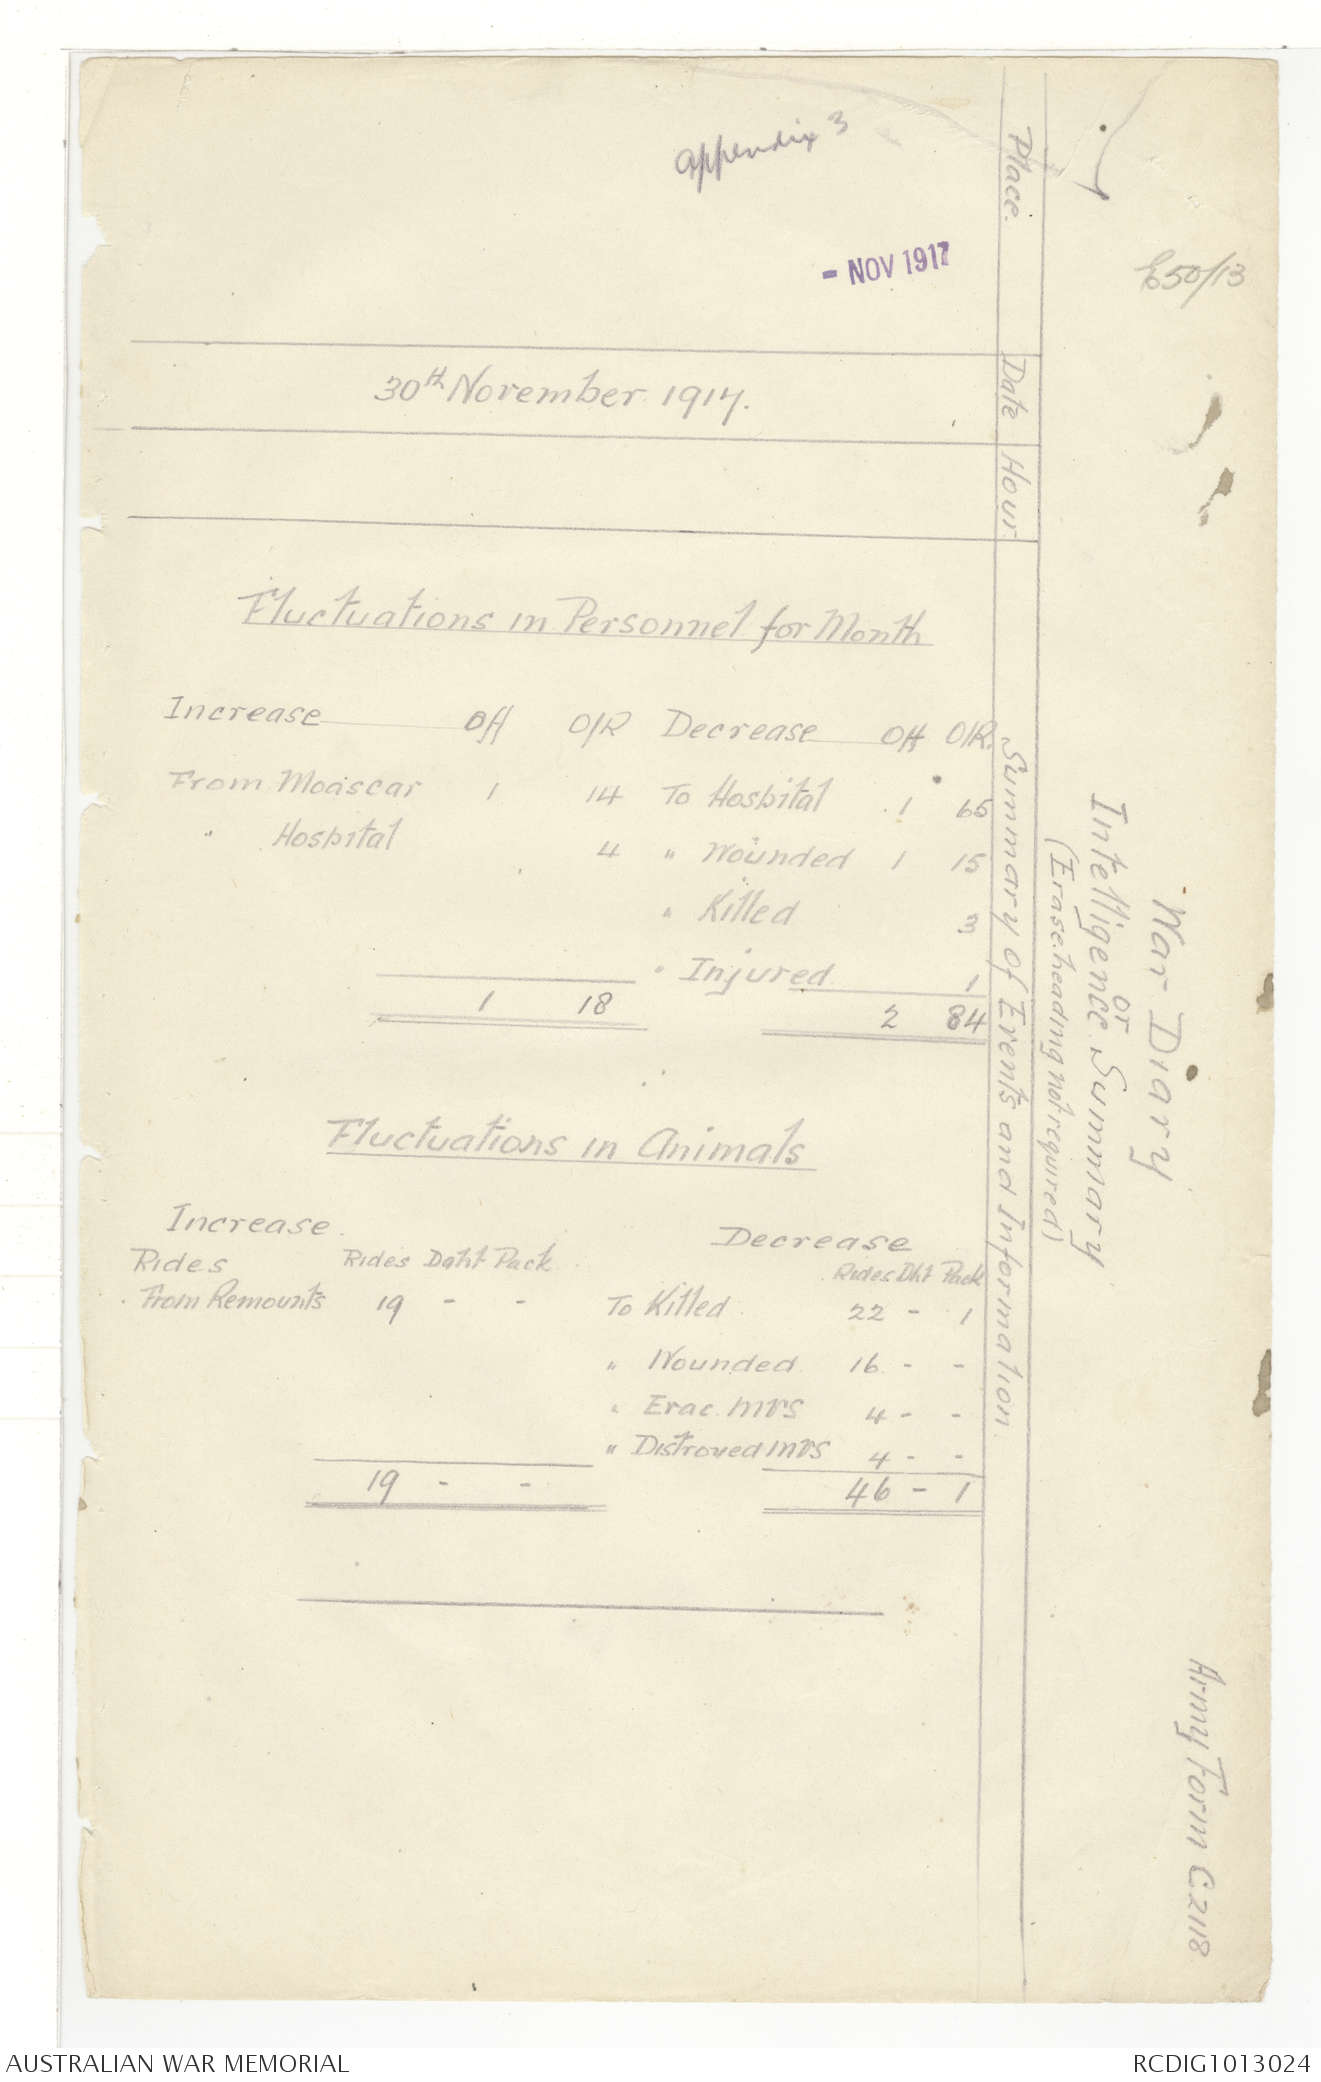 Appendix 3
- NOV 1917
E50/13
Army Form C2118
War Diary
or
Intelligence Summary
(Erase heading not required)
Place.
Date
Hour.
Summary of Events and Information
30th November 1917.
Fluctuations in Personnel for Month
Increase Off O/R Decrease Off O/R.
From Moascar 1 14 To Hospital 1 65
" Hospital 4 " Wounded 1 15
" Killed 3
" Injured 1
1 18 2 84
Fluctuations in Animals
Increase Decrease
Rides Rides Dght Pack Rides Dht Pack
From Remounts 19 - - To Killed 22 - 1
" Wounded 16 - -
" Evac. MVS 4 - -
" Distroyed MVS 4 - -
19 - - 46 - 1
AUSTRALIAN WAR MEMORIAL
RCDIG1013024